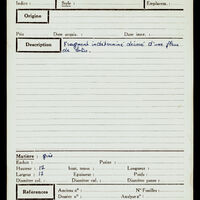 Indice : Style : Emplacem. :
Origine
Prix Date acqu. : Date inv. :
Description Fragment indéterminé décoré d'une fleur
de lotus.
Matière : grès
Exécu. : Poids :
Hauteur : 12 haut. minu. : Longueur :
Largeur : 12 Epaisseur : Profondeur :
Diamètre : Diamètre col. : Diamètre panse :
Références Anciens n° : N° Fouilles :
Dossier n° : Analyse n° :